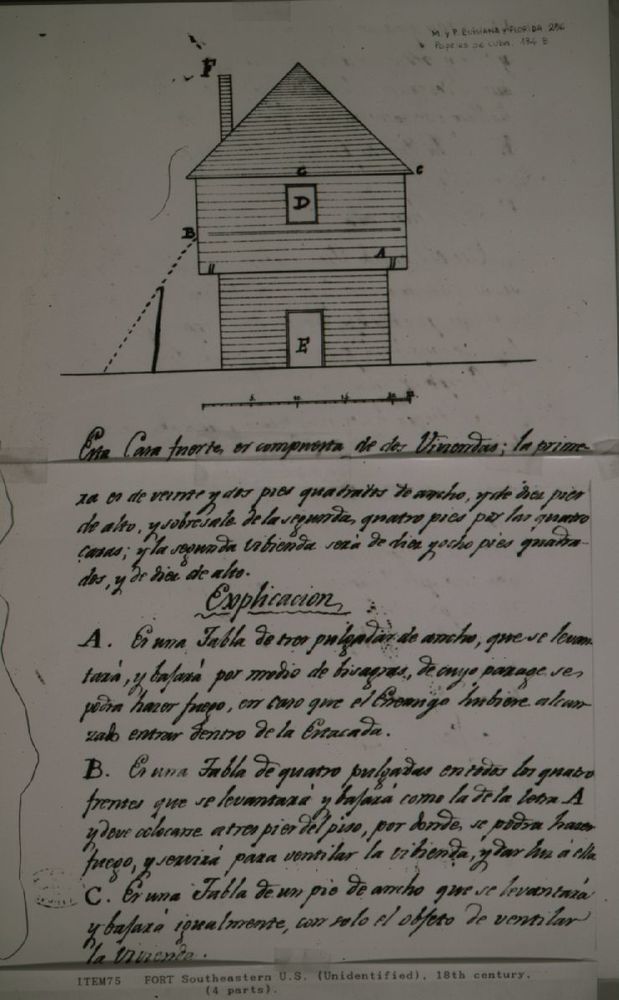 M. y P. LUISIANA y FLORIDA. 286
Papeles de Cuba. 184 B
F
G
C
D
B
A
E
Esta Casa fuerte, es compuesta de dos Viviendas; la prime-
ra es de veinte y dos pies quadrados de ancho, y de diez pies
de alto, y sobresale de la segunda, quatro pies por las quatro
caras; y la segunda vibienda será de diez y ocho pies quadra-
dos, y de diez de alto.
Explicacion
A. Es una Tabla de tres pulgadas de ancho, que se levan-
tará, y bajará por medio de bisagras, de cuyo parage se
podra hazer fuego, en caso que el Enemigo hubiere alcan-
zado entrar dentro de la Estacada.
B. Es una Tabla de quatro pulgadas en todos los quatro
frentes que se levantará y bajará como la de la letra A
y deve colocarse a tres pies del piso, por donde, se podra hazer
fuego, y servirá para ventilar la vibienda, y dar luz á ella
C. Es una Tabla de un pie de ancho que se levantará
y bajará igualmente, con solo el objeto de ventilar
la Vivienda.
ITEM75 FORT Southeastern U.S. (Unidentified), 18th century.
(4 parts).